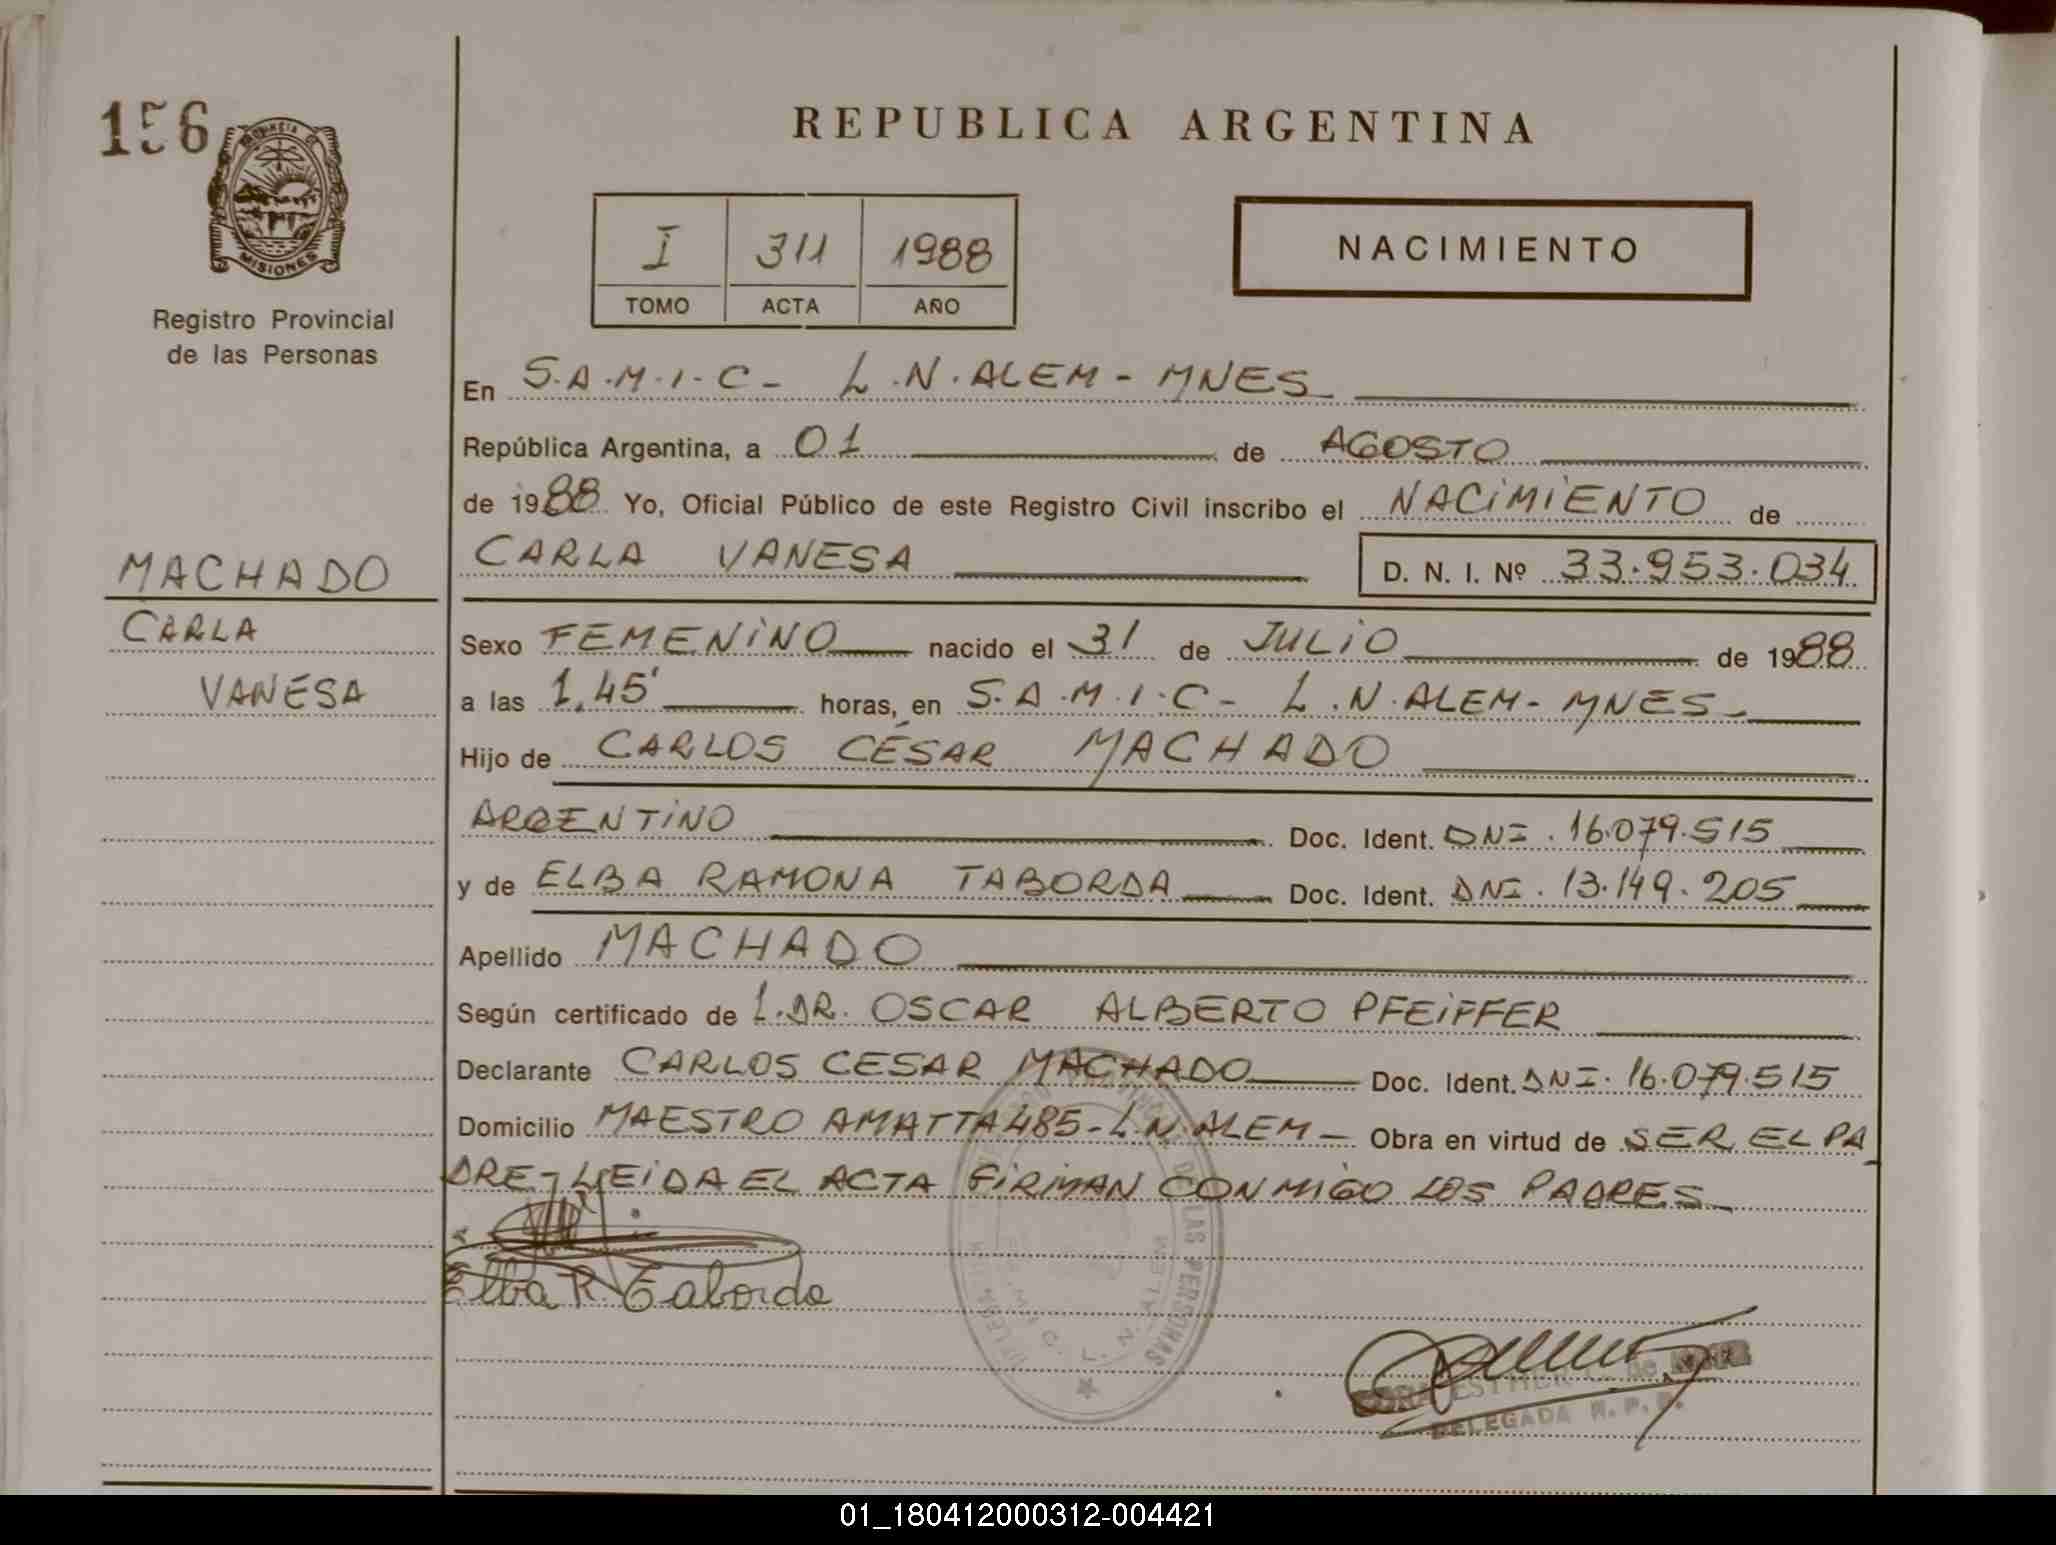 156
PROVINCIA DE
MISIONES
Registro Provincial
de las Personas
MACHADO
CARLA
VANESA
REPUBLICA ARGENTINA
I 311 1988
TOMO ACTA AÑO
NACIMIENTO
En S.A.M.I.C- L.N.ALEM- MNES
República Argentina, a 01 de AGOSTO
de 1988 Yo, Oficial Público de este Registro Civil inscribo el NACIMIENTO de
CARLA VANESA D. N. I. Nº 33.953.034
Sexo FEMENINO nacido el 31 de JULIO de 1988
a las 1,45' horas, en S.A.M.I.C- L.N.ALEM- MNES-
Hijo de CARLOS CÉSAR MACHADO
ARGENTINO Doc. Ident. DNI. 16.079.515
y de ELBA RAMONA TABORDA Doc. Ident. DNI. 13.149.205
Apellido MACHADO
Según certificado de L.DR. OSCAR ALBERTO PFEIFFER
Declarante CARLOS CESAR MACHADO Doc. Ident. DNI. 16.079.515
Domicilio MAESTRO AMATTA 485-L.N.ALEM- Obra en virtud de SER EL PA
DRE- LEIDA EL ACTA FIRMAN CONMIGO LOS PADRES
Elba R. Taborda
DE LAS PERSONAS
L. N. ALEM
ESTHER
de
DELEGADA R. P. P.
01_180412000312-004421